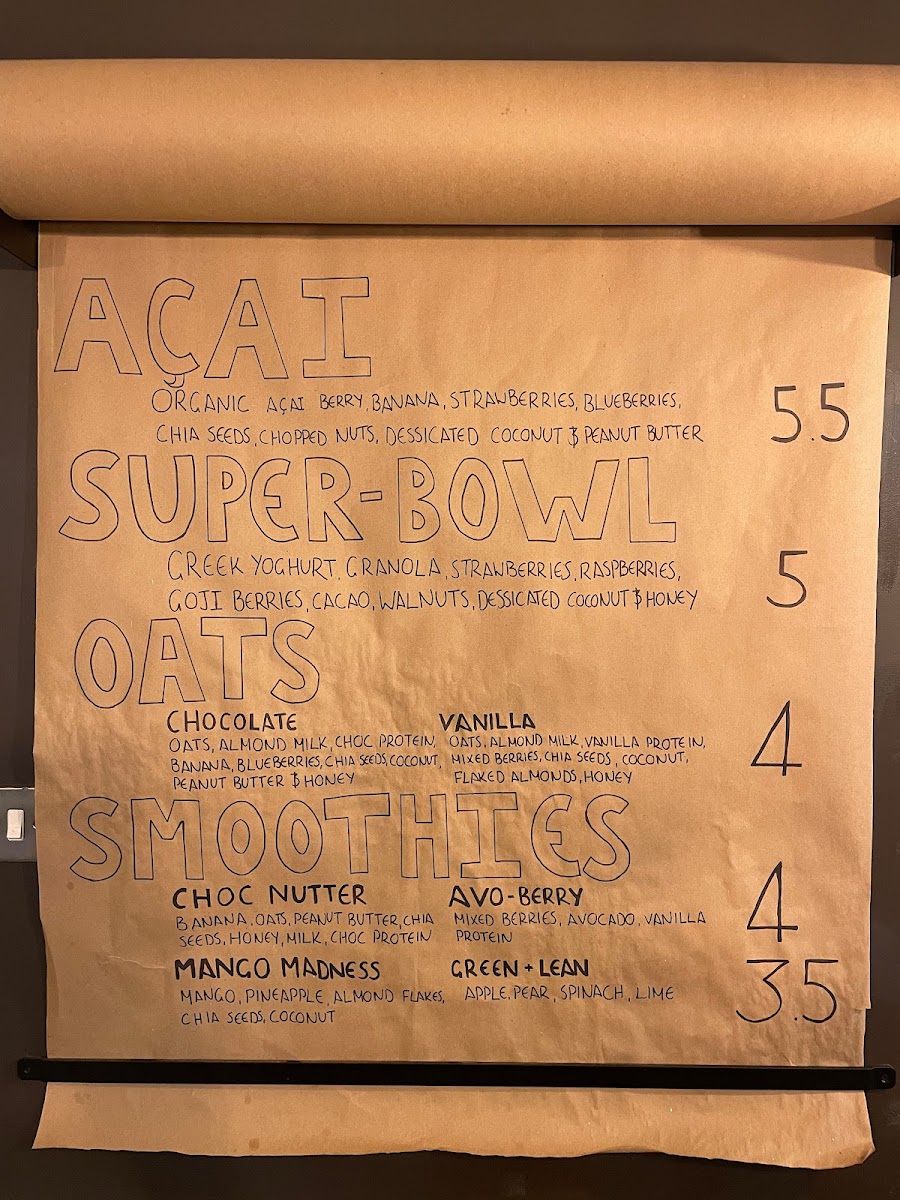 AÇAI
ORGANIC AÇAI BERRY, BANANA, STRAWBERRIES, BLUEBERRIES,
CHIA SEEDS, CHOPPED NUTS, DESSICATED COCONUT & PEANUT BUTTER
5.5
SUPER-BOWL
GREEK YOGHURT, GRANOLA, STRAWBERRIES, RASPBERRIES,
GOJI BERRIES, CACAO, WALNUTS, DESSICATED COCONUT & HONEY
5
OATS
CHOCOLATE
OATS, ALMOND MILK, CHOC PROTEIN,
BANANA, BLUEBERRIES, CHIA SEEDS, COCONUT,
PEANUT BUTTER & HONEY
VANILLA
OATS, ALMOND MILK, VANILLA PROTEIN,
MIXED BERRIES, CHIA SEEDS, COCONUT,
FLAKED ALMONDS, HONEY
4
SMOOTHIES
CHOC NUTTER
BANANA, OATS, PEANUT BUTTER, CHIA
SEEDS, HONEY, MILK, CHOC PROTEIN
AVO-BERRY
MIXED BERRIES, AVOCADO, VANILLA
PROTEIN
4
MANGO MADNESS
MANGO, PINEAPPLE, ALMOND FLAKES,
CHIA SEEDS, COCONUT
GREEN + LEAN
APPLE, PEAR, SPINACH, LIME
3.5